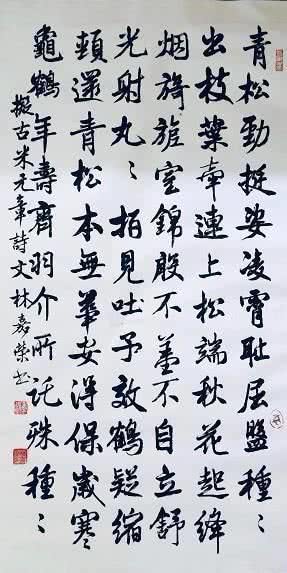 青松勁挺姿凌霄恥屈盤種〻
出枝葉牽連上松端秋花起絳
烟旖旎雲錦殷不羞不自立舒
光射丸〻柏見吐子效鶴疑縮
頸還青松本無華安得保歲寒
龜鶴年壽齊羽介所託殊種〻
擬古米元章詩文 林嘉榮书